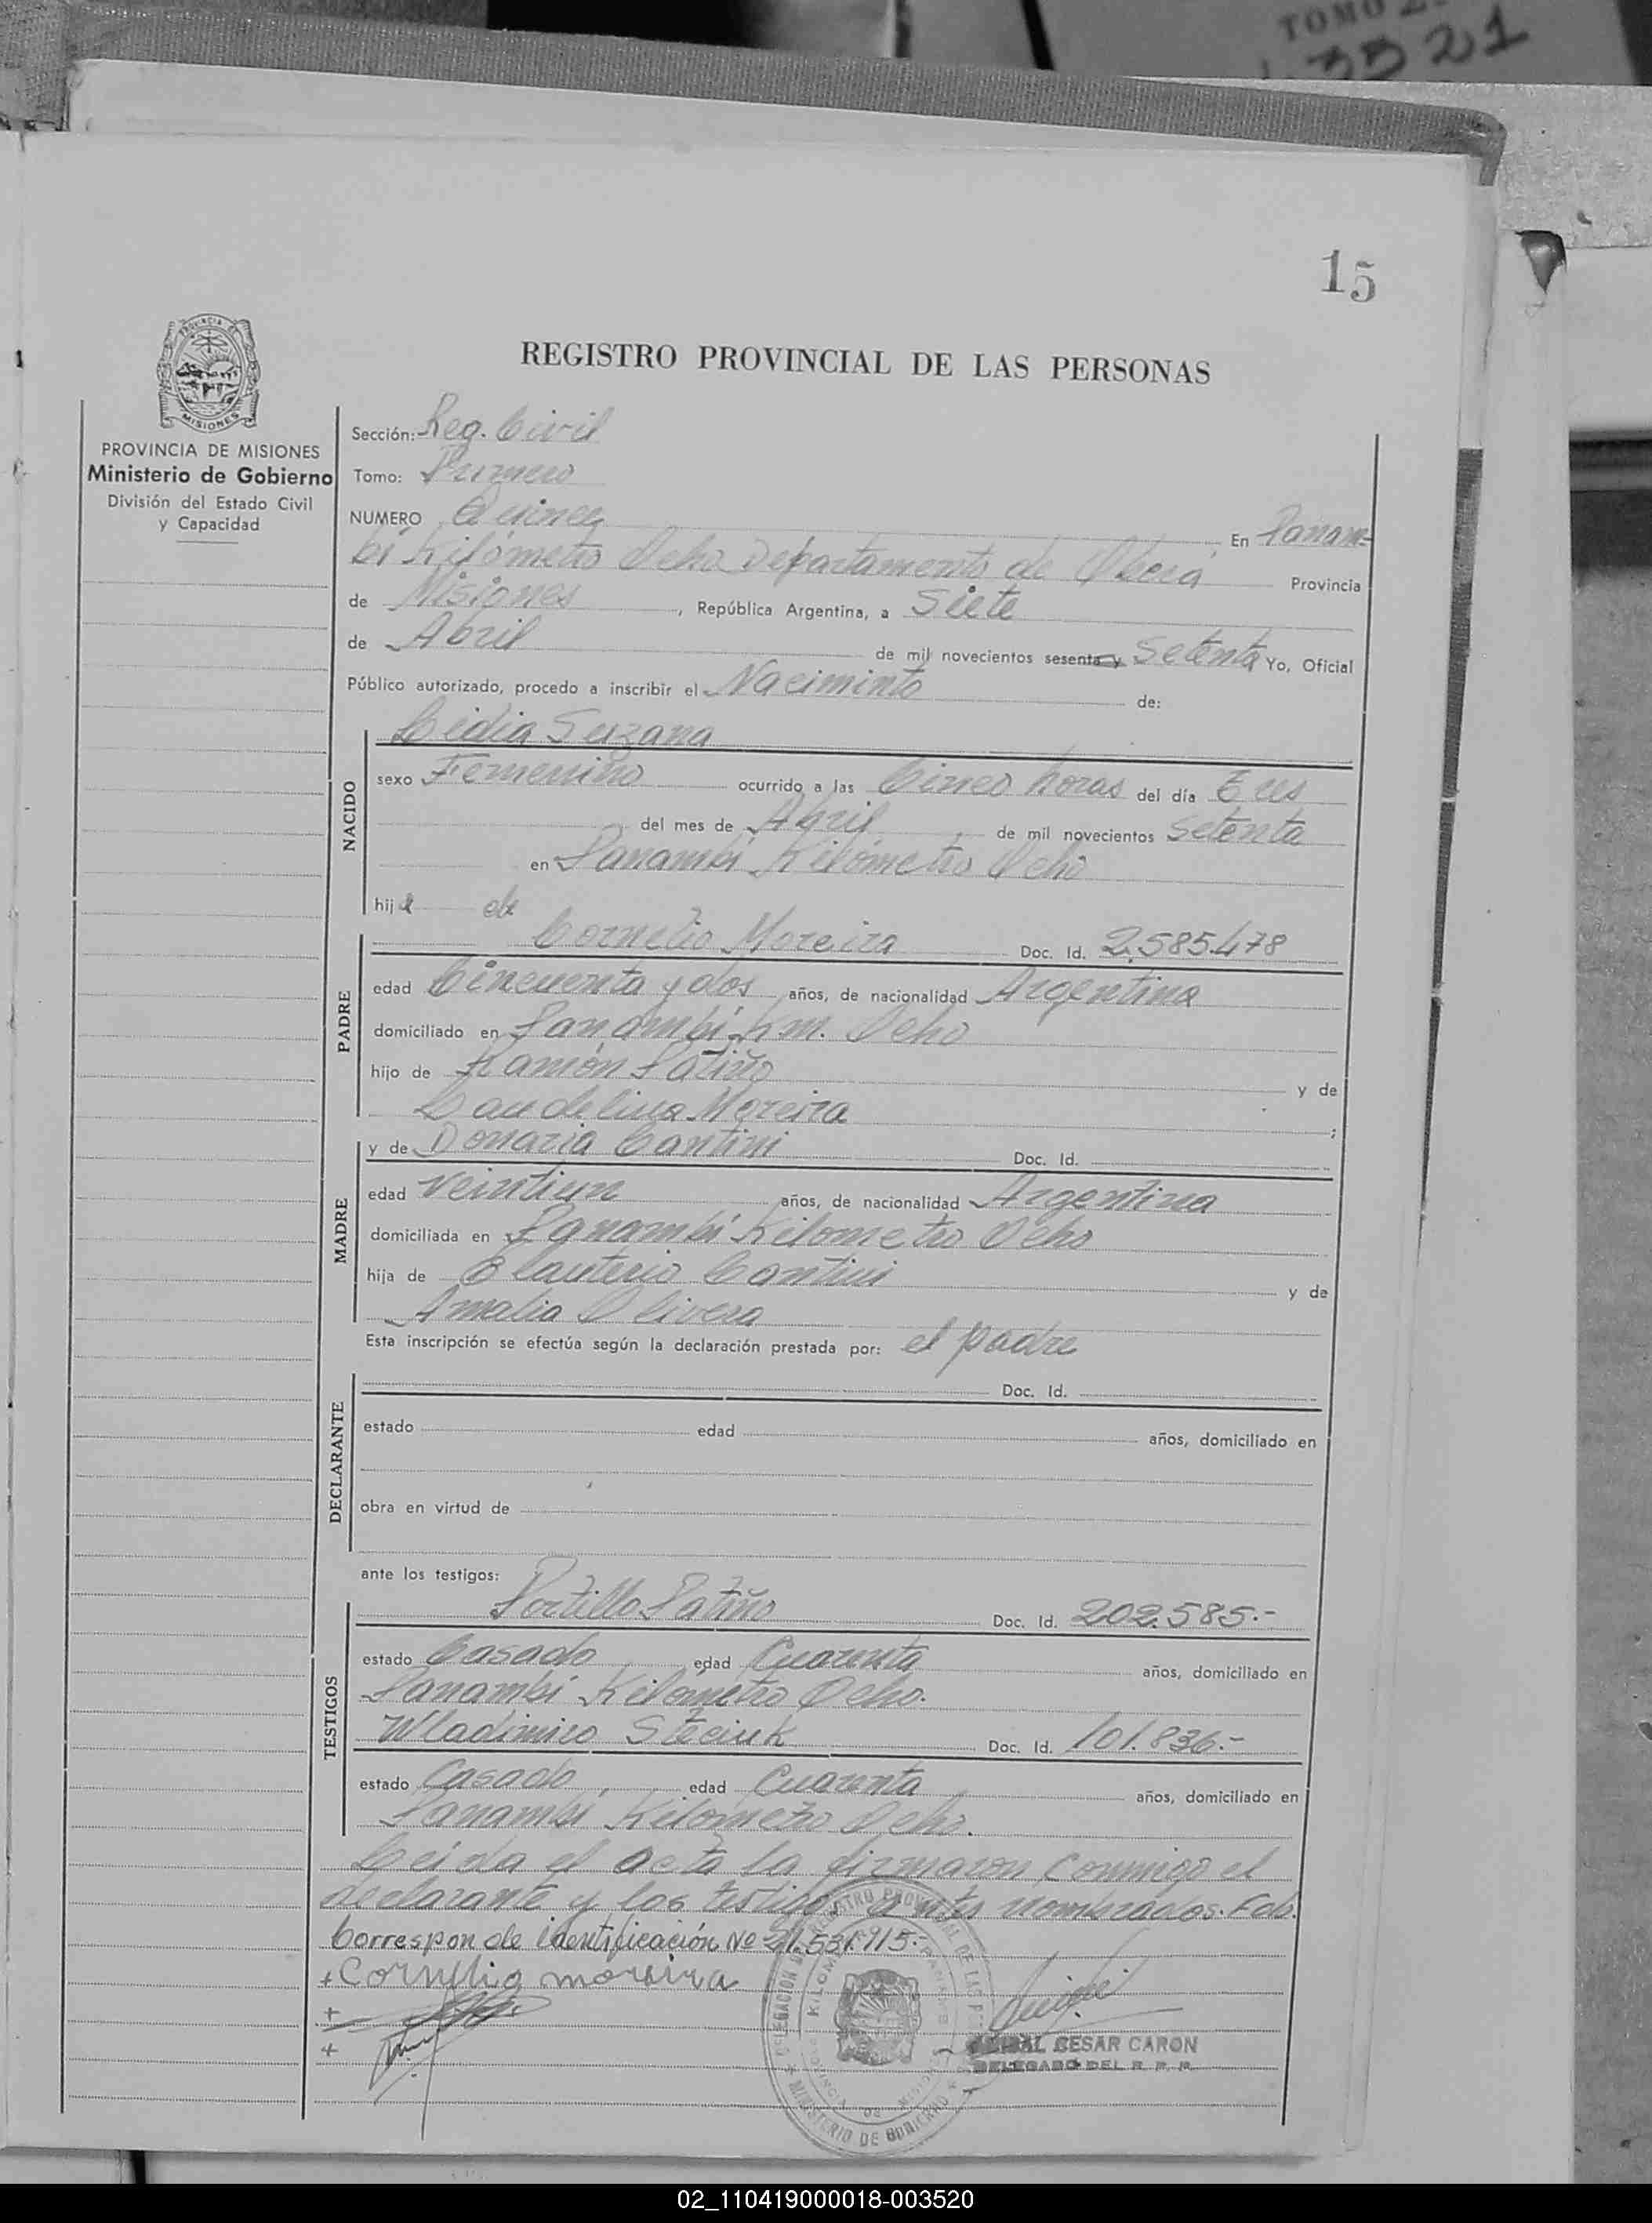 TOMO 2.
3321
15
PROVINCIA DE MISIONES
MISIONES
PROVINCIA DE MISIONES
Ministerio de Gobierno
División del Estado Civil
y Capacidad
REGISTRO PROVINCIAL DE LAS PERSONAS
Sección: Reg. Civil
Tomo: Primero
NUMERO Quince En Panam-
bí Kilómetro Ocho Departamento de Oberá Provincia
de Misiones, República Argentina, a Siete
de Abril de mil novecientos sesenta y Setenta Yo, Oficial
Público autorizado, procedo a inscribir el Naciminto de:
NACIDO
Lidia Suzana
sexo Femenino ocurrido a las Cinco horas del día Tres
del mes de Abril de mil novecientos Setenta
en Panambí Kilómetro Ocho
hij de
PADRE
Cornelio Moreira Doc. Id. 2.585.478
edad Cincuenta y dos años, de nacionalidad Argentina
domiciliado en Panambí Km. Ocho
hijo de Ramón Patiño y de
Laudelina Moreira ;
MADRE
y de Donaria Cantini Doc. Id.
edad Veintiun años, de nacionalidad Argentina
domiciliada en Panambí Kilometro Ocho
hija de Elauterio Cantini y de
Amalia Olivera
Esta inscripción se efectúa según la declaración prestada por: el padre
DECLARANTE
Doc. Id.
estado edad años, domiciliado en
obra en virtud de
ante los testigos:
TESTIGOS
Portillo Patiño Doc. Id. 202.585.-
estado Casado edad Cuarenta años, domiciliado en
Panambí Kilómetro Ocho.
Wladimiro Steciuk Doc. Id. 101.836.-
estado Casado edad Cuarenta años, domiciliado en
Panambí Kilometro Ocho.
Leida el acta la firmaron conmigo el
declarante y los testigos antes nombrados.
Corresponde identificación Nº 21.531.915.-
+ Cornelio moreira
+
+
DELEGACION DEL REGISTRO PROVINCIAL DE LAS PERSONAS
MINISTERIO DE GOBIERNO
CESAR CARON
DELEGADO DEL R. P. P.
02_110419000018-003520